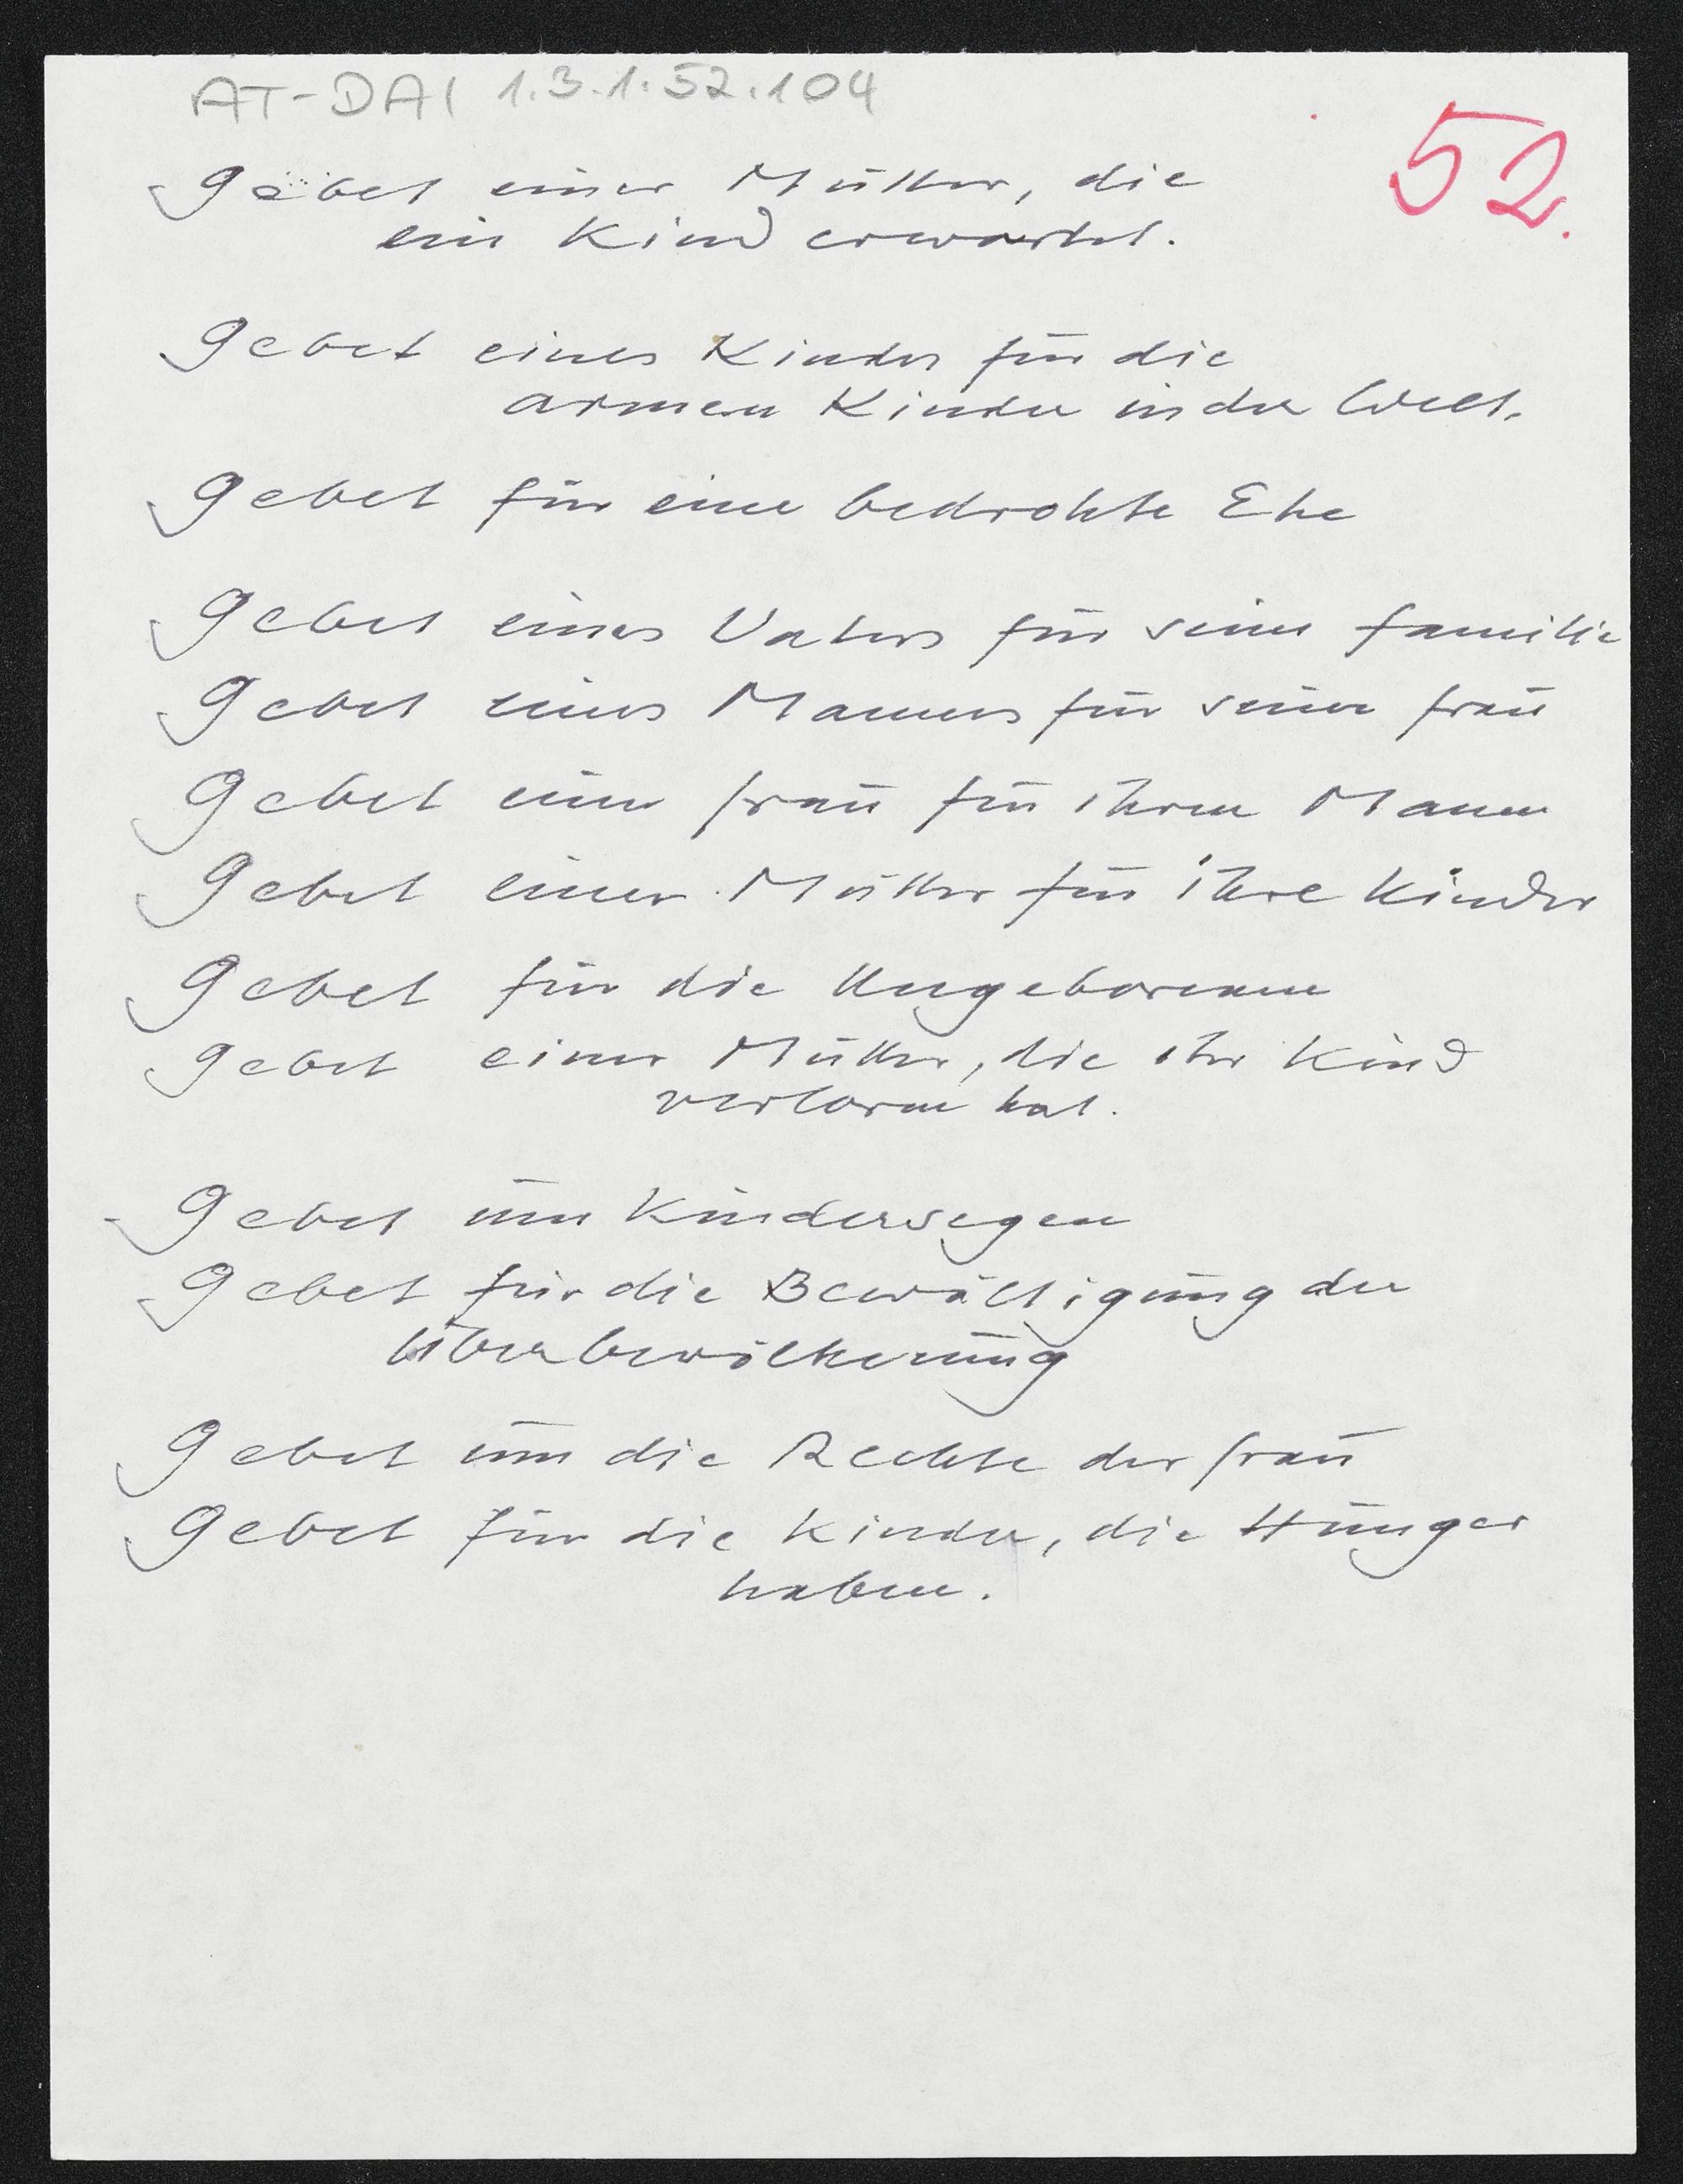 AT-DAI 1.3.1.52.104
52.
Gebet einer Mutter, die
ein Kind erwartet.
Gebet eines Kindes für die
armen Kinder in der Welt.
Gebet für eine bedrohte Ehe
Gebet eines Vaters für seine Familie
Gebet eines Mannes für seine Frau
Gebet einer Frau für ihren Mann
Gebet einer Mutter für ihre Kinder
Gebet für die Ungeborenen
Gebet einer Mutter, die ihr Kind
verloren hat.
Gebet um Kindersegen
Gebet für die Bewältigung der
Überbevölkerung
Gebet um die Rechte der Frau
Gebet für die Kinder, die Hunger
haben.